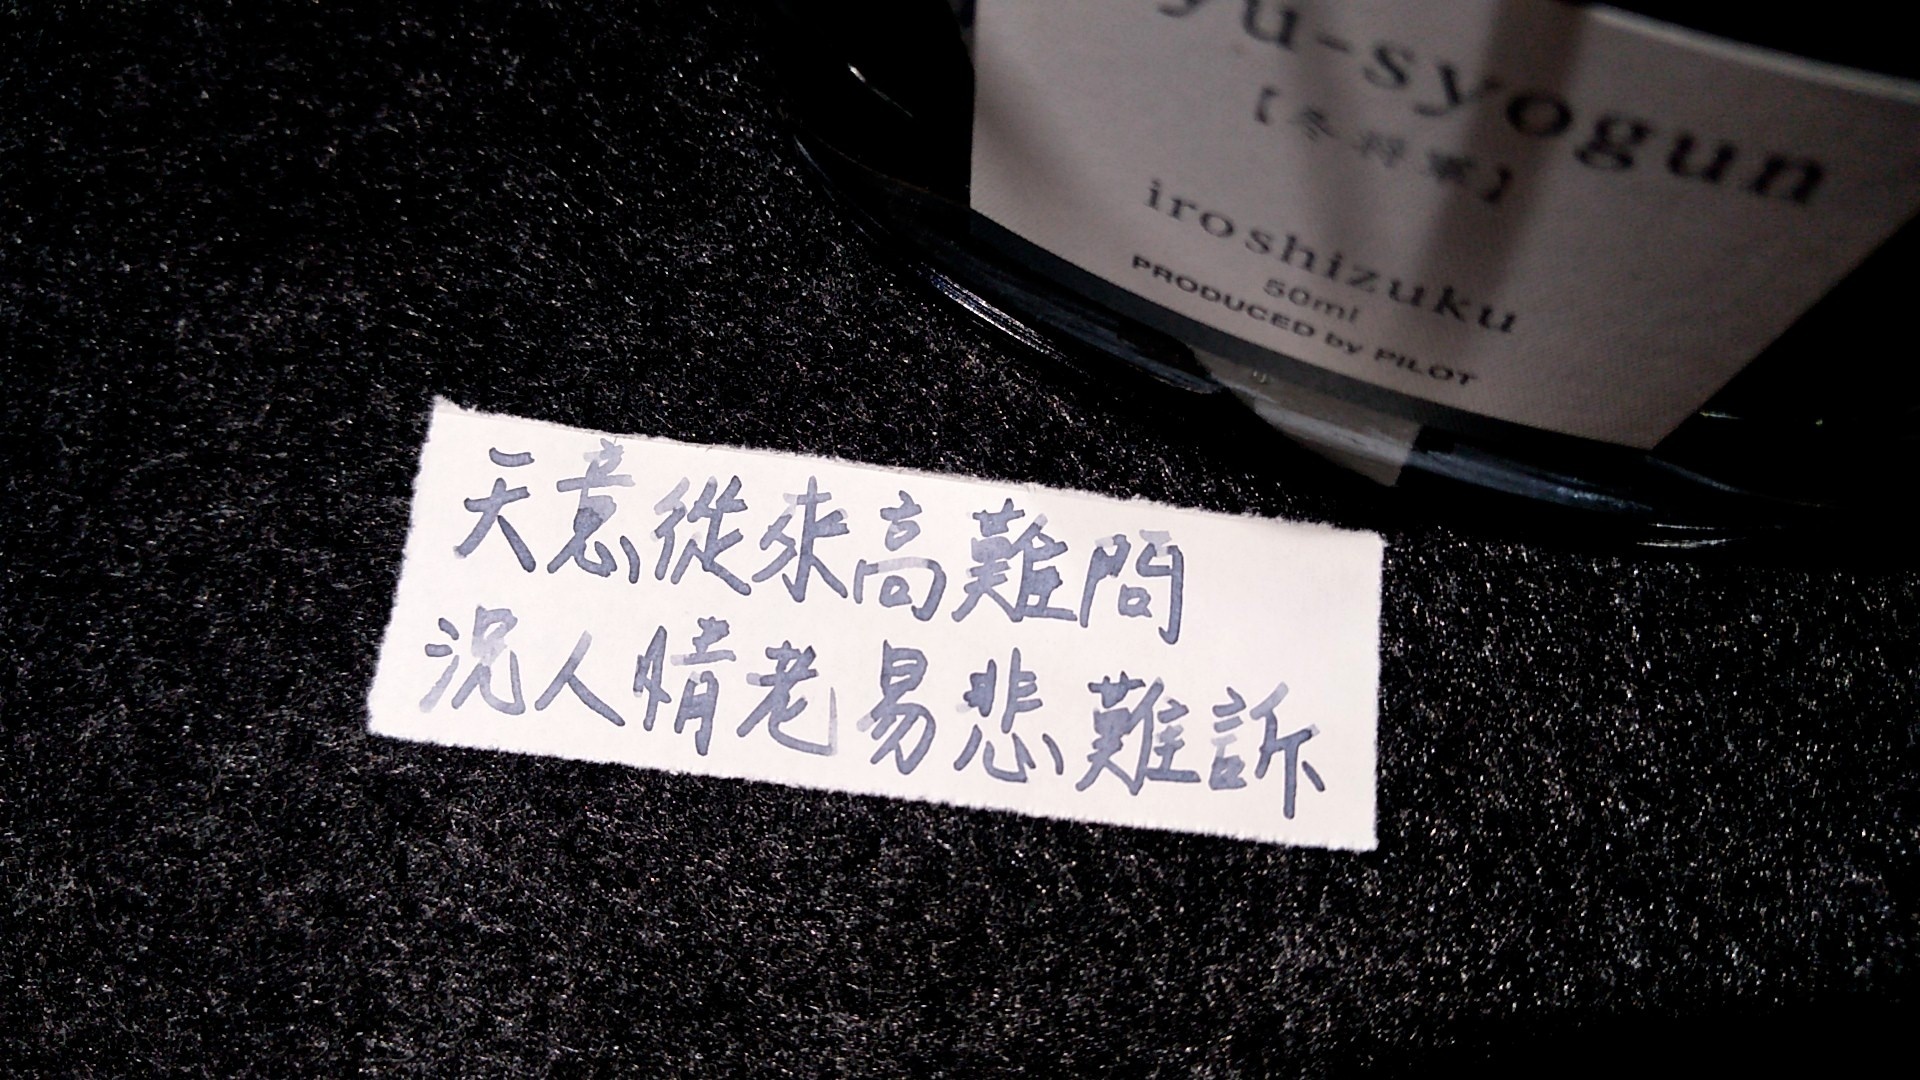 yu-syogun
【冬将軍】
iroshizuku
50ml
PRODUCED by PILOT
天意從來高難問
況人情老易悲難訴